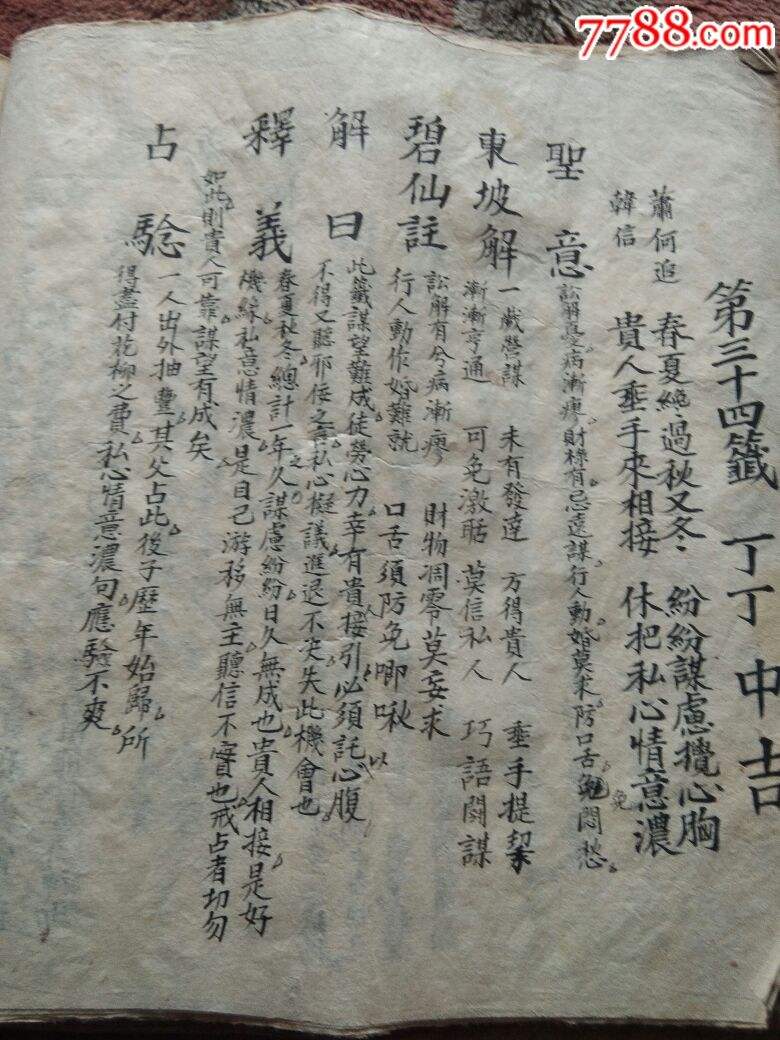 7788.com
第三十四籤 丁丁 中吉
蕭何追
韓信
春夏纔過秋又冬 紛紛謀慮攪心胸
貴人垂手來相接 休把私心情意濃
聖意
訟解憂病漸瘳財樣有忌遠謀行人動婚莫求防口舌兔悶愁
免
東坡解
一歲營謀 未有發達 方得貴人 垂手提挈
漸漸亨通 可免激聒 莫信私人 巧語鬪謀
碧仙註
訟解有兮病漸瘳 財物凋零莫妄求
行人動作婚難就 口舌須防免唧啾
解曰
此籤謀望難成徒勞心力幸有貴接引必須託心腹
以 以
不得又聽邪佞之言私心擬議進退不决失此機會也
釋義
春夏秋冬總計一年久謀慮紛紛日久無成也貴人相接是好
之
機緣私意情濃是自己游移無主聽信不實也戒占者切勿
如此則貴人可靠謀望有成矣
占騐
一人出外抽豐其父占此後子歷年始歸所
得盡付花柳之費私心情意濃句應騐不爽